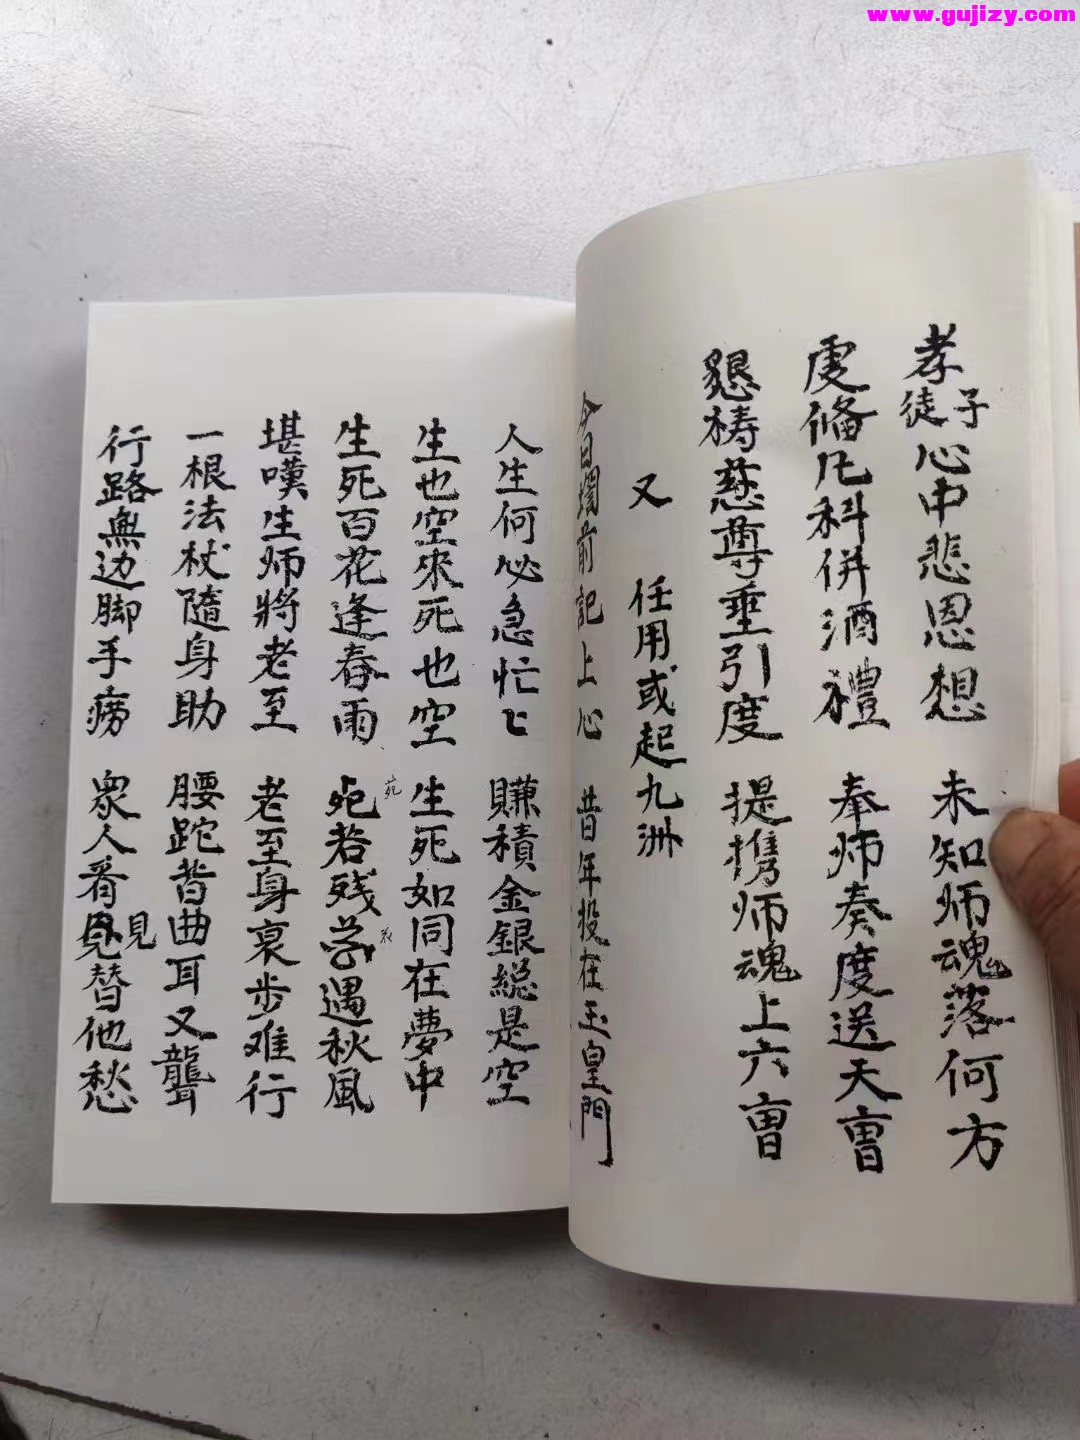 www.gujizy.com
孝子徒心中悲恩想 未知师魂落何方
虔脩凡科併酒禮 奉师奏度送天曹
懇祷慈尊垂引度 提携师魂上六曹
又 任用或起九洲
今日壇前記上心 昔年投在玉皇門
人生何必急忙匕 賺積金銀総是空
生也空來死也空 生死如同在夢中
生死百花逢春雨 死若残花遇秋風
苑
衣
堪嘆生师將老至 老至身哀步难行
一根法杖隨身助 腰跎背曲耳又聾
行路無边脚手痨 眾人看見替他愁
見